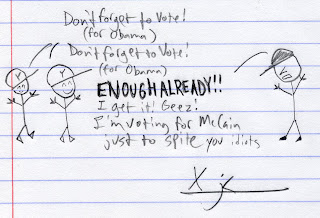 Don't forget to Vote!
(for Obama)
Don't forget to Vote!
(for Obama)
ENOUGH ALREADY!!
I get it! Geez!
I'm voting for McCain
just to spite you idiots